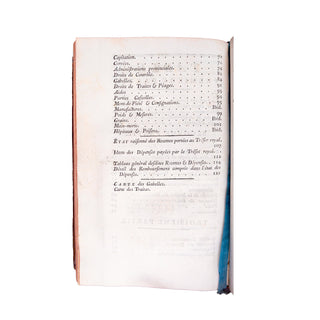 Capitation. . . . . . . . . . . 71
Corvées. . . . . . . . . . . 72
Administrations provinciales. . . . . . 74
Droits de Contrôle. . . . . . . . . Ibid.
Gabelles. . . . . . . . . . .
Droits de Traites & Péages. . . . . .
Aides. . . . . . . . . . .
Parties Casuelles. . . . . . . . . Ibid.
Mont de Piété & Consignations. . . . . 95
Manufactures. . . . . . . . . . Ibid.
Poids & Mesures. . . . . . . . . 99
Grains. . . . . . . . . . . Ibid.
Main-morte. . . . . . . . . .
Hôpitaux & Prisons. . . . . . . . Ibid.
ETAT raisonné des Recettes portées au Trésor royal.
107
Idem des Dépenses payées par le Trésor royal.
Tableau général desdites Recettes & Dépenses. . 220
Détail des Remboursemens compris dans l'état des
Dépenses. . . . . . . . . . . 221
CARTE des Gabelles.
Carte des Traites.